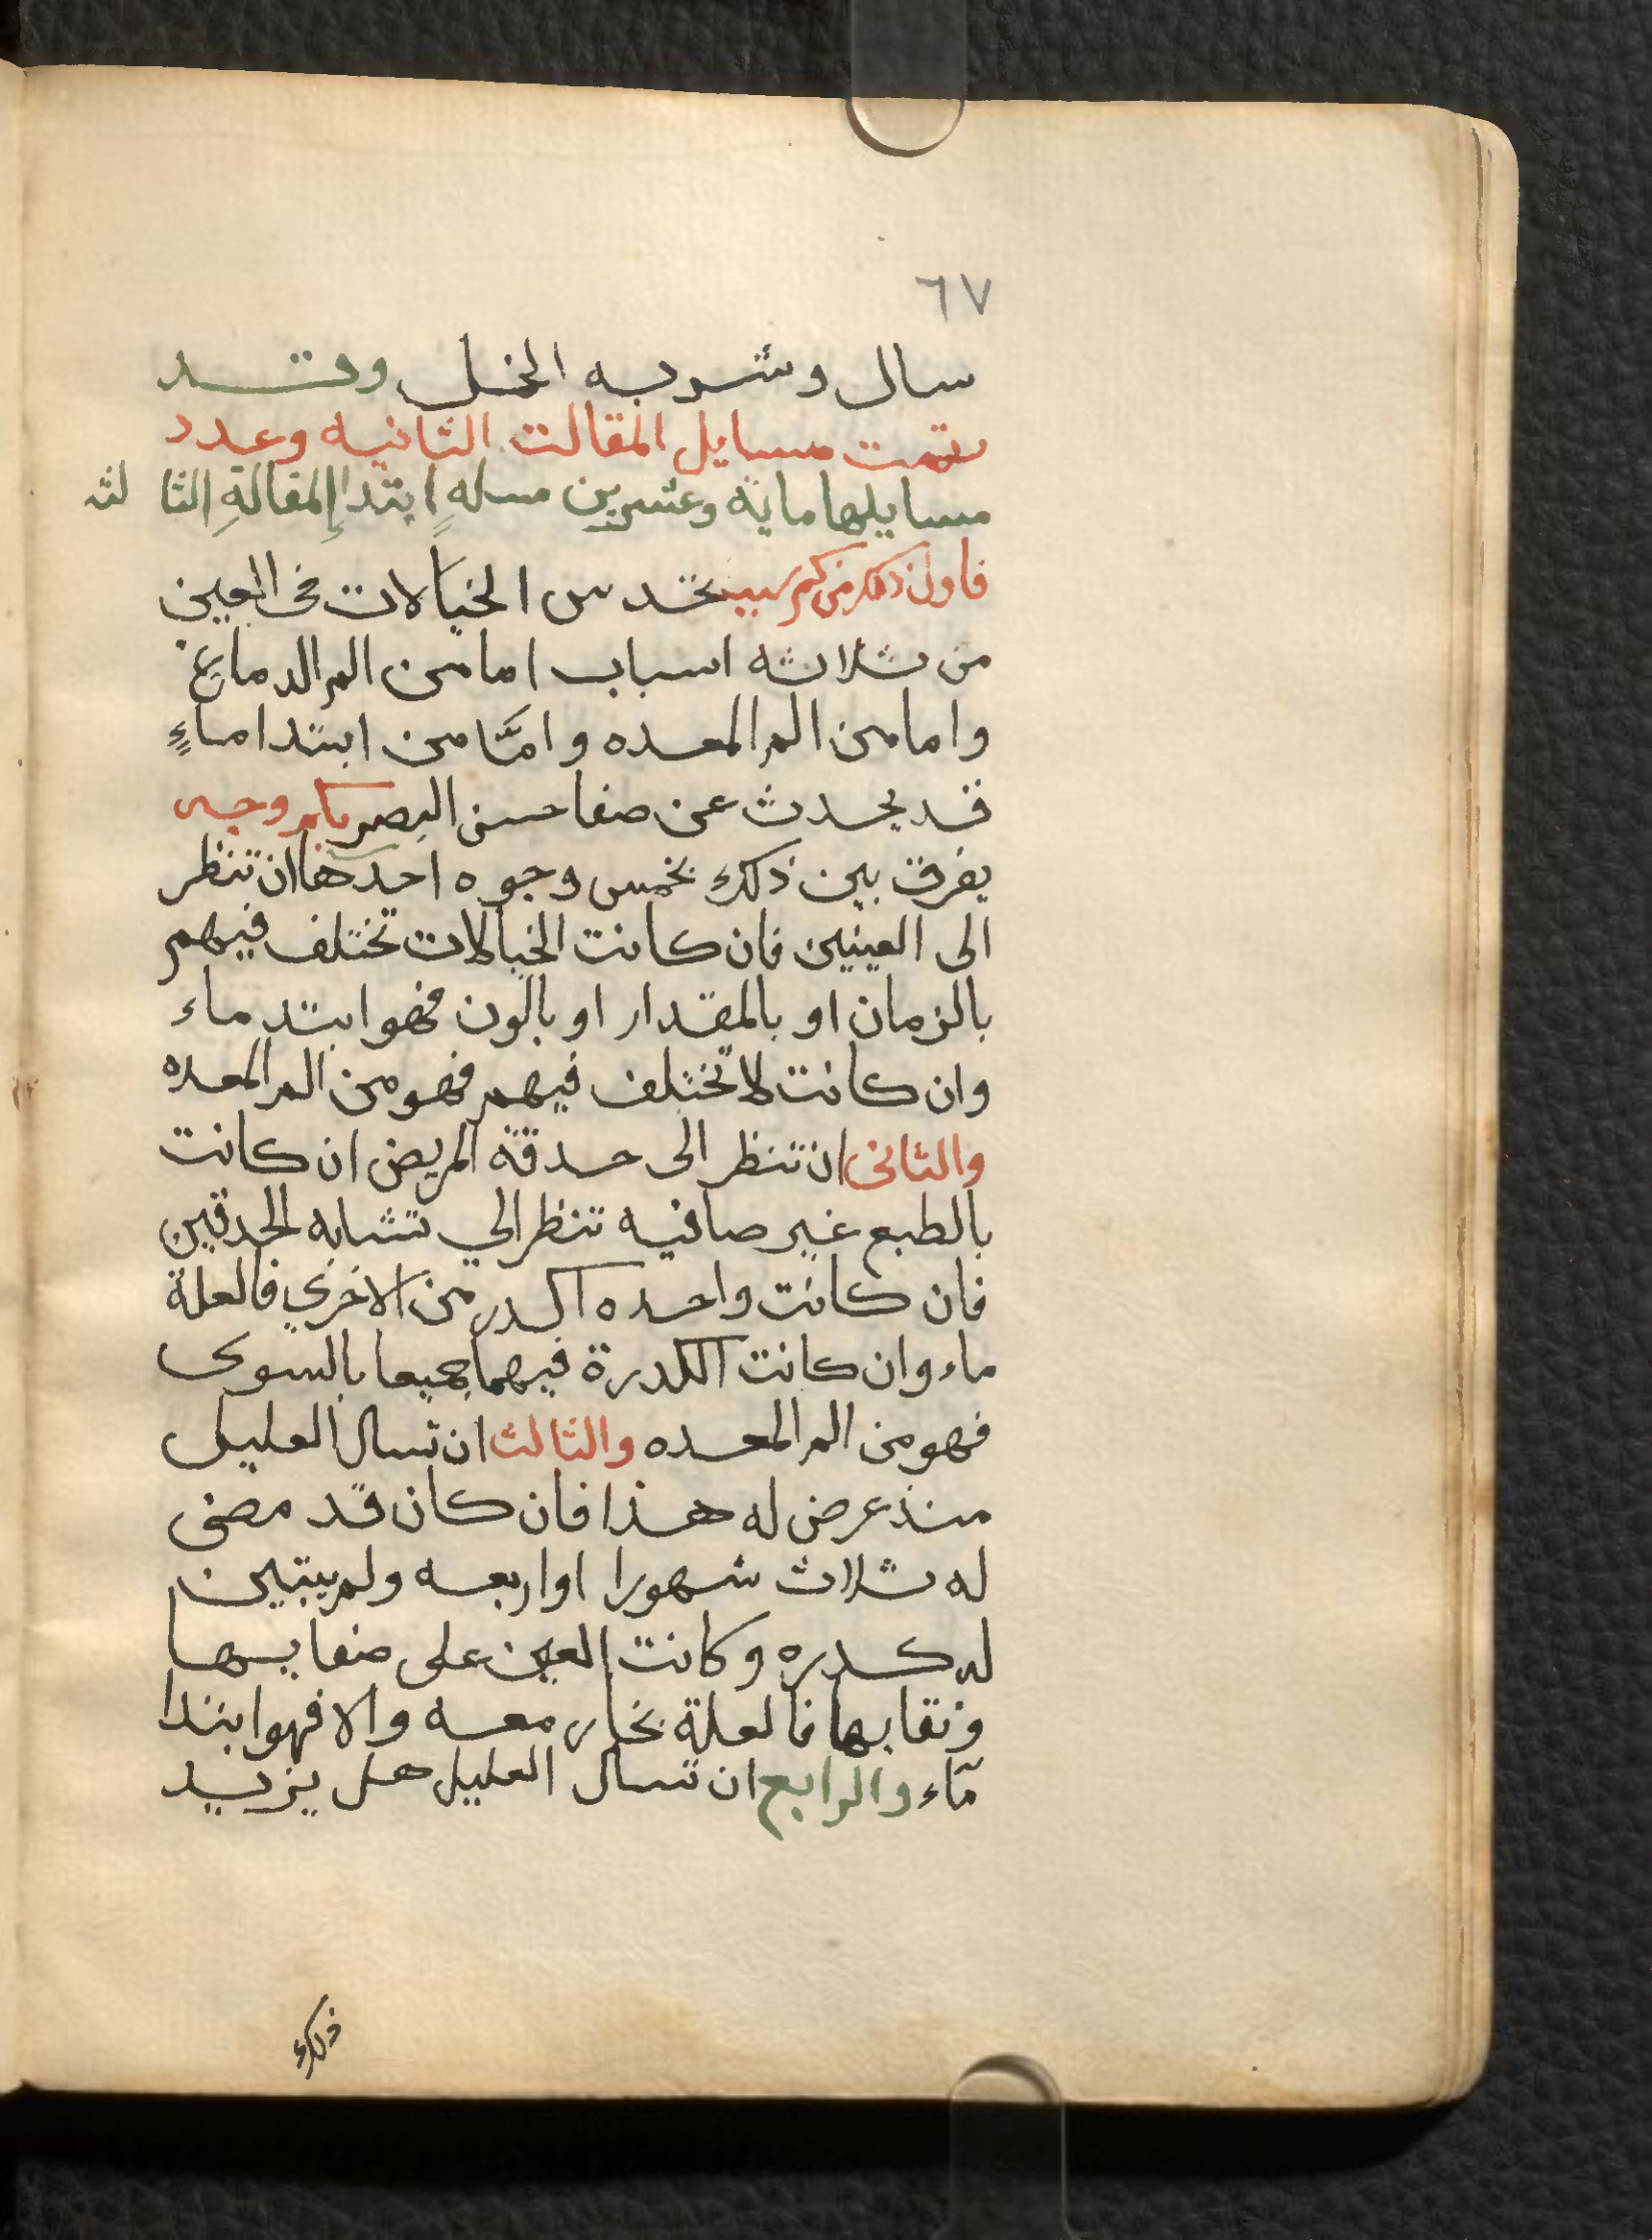 ٦٧
سال وشربه الخل وقد
تمت مسايل المقالت الثانيه وعدد
مسايلها ماية وعشرين مسله ابتدا المقالة الثا لثه
فاول ذلك من كم سبب تحدس الخيالات في العين
من ثلاثه اسباب اما من الم الدماغ
واما من الم المعده وامّا من ابتدا ماءٍ
قد يحدث عن صفا حسن البصر بكم وجه
يفرق بين ذلك بخمس وجوه احدها ان تنظر
الى العينين فان كانت الخيالات تختلف فيهم
بالزمان او بالمقدار او بالون فهو ابتد ماء
وان كانت لا تختلف فيهم فهو من الم المعده
والثانى ان تنظر الى حدقة المريض ان كانت
بالطبع غير صافيه تنظر الي تشابه الحدقين
فان كانت واحده اكدر من الاخري فالعلة
ماء وان كانت الكدرة فيهما جميعا بالسوى
فهو من الم المعده والثالث ان تسال العليل
منذ عرض له هذا فان كان قد مضى
له ثلاث شهورا او اربعه ولم يتبين
له كدره وكانت العين على صفايها
ونقايها فالعلة بخار معه والا فهو ابتدا
مآء والرابع ان تسال العليل هل يزيد
ذلك